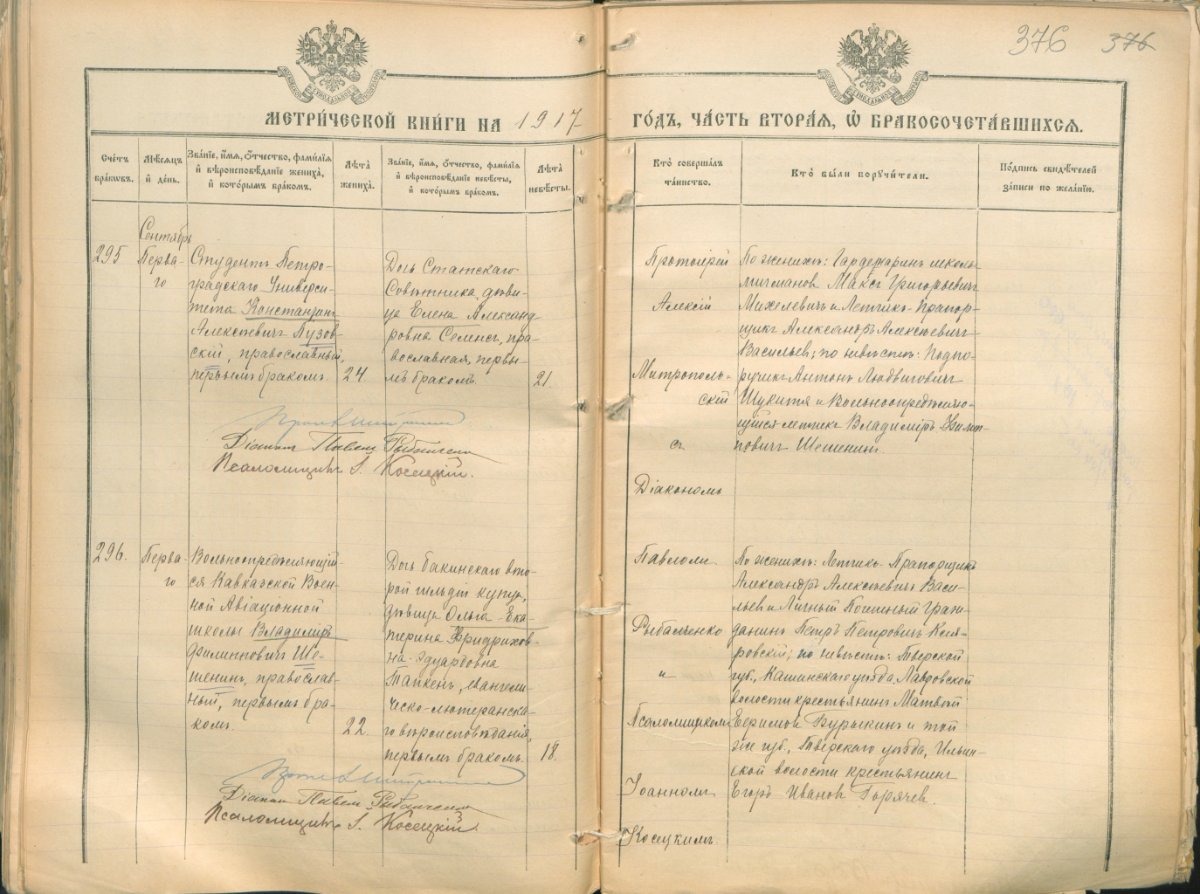 376 376
МЕТРИ́ЧЕСКОЙ КНИ́ГИ НА 1917
ГО́ДЪ, ЧА́СТЬ ВТОРА́Я, Ѡ БРАКОСОЧЕТА́ВШИХСЯ.
Сче́тъ бра́ковъ.
Мѣ́сяцъ и҆ де́нь.
Зва́нїе, и҆́мя, ѻ҆́тчество, фами́лїя
и҆ вѣроисповѣ́данїе жениха̀,
и҆ кото́рымъ бра́комъ.
Лѣ́та жениха̀.
Зва́нїе, и҆́мя, ѻ҆́тчество, фами́лїя
и҆ вѣроисповѣ́данїе невѣ́сты,
и҆ кото́рымъ бра́комъ.
Лѣ́та невѣ́сты.
Кто̀ соверша́лъ
та́инство.
Кто̀ бы́ли поручи́тели.
По́дпись свидѣ́телей
за́писи по жела́нїю.
295
Сентябрь
Перва-
го
Студентъ Петро-
градскаго Универси-
тета Константинъ
Алексѣевичъ Пузов-
скій, православный,
первымъ бракомъ.
24.
Дочь Статскаго
Совѣтника, дѣви-
ца Елена Александ-
ровна Селенсъ, пра-
вославная, первы-
мъ бракомъ.
21.
Протоіерей
Алексій
Митрополь-
скій
съ
Діакономъ
По женихѣ: Гардемаринъ школы
мичмановъ Максъ Григорьевичъ
Михелевичъ и Летчикъ Прапор-
щикъ Александръ Алексѣевичъ
Васильев; по невѣстѣ: Подпо-
ручикъ Антонъ Людвиговичъ
Шукшта и Вольноопредѣляю-
щійся летчикъ Владиміръ Филип-
повичъ Шешенинъ.
Діаконъ Павелъ Рыбалченко
Псаломщикъ І. Косецкій.
296.
Перва-
го
Вольноопредѣляющій-
ся Кавказской Воен-
ной Авіаціонной
школы Владиміръ
Филипповичъ Ше-
шенинъ, православ-
ный, первымъ бра-
комъ.
22.
Дочь бакинскаго вто-
рой гильдіи купца,
дѣвица Ольга-Ека-
терина Фридрихов-
на-Эдуардовна
Тапкенъ, евангели-
ческо-лютеранска-
го вѣроисповѣданія,
первымъ бракомъ.
18.
Павломъ
Рыбалченко
и
Псаломщикомъ
Іоанномъ
Косецкимъ.
По женихѣ: Летчикъ Прапорщикъ
Александръ Алексѣевичъ Васи-
льев и Личный Почетный Граж-
данинъ Петръ Петровичъ
по невѣстѣ: Тверской
губ., Кашинскаго уѣзда, Лавровской
волости крестьянинъ Матвѣй
Ефимов Бурыкинъ и той
же губ., Тверского уѣзда, Ильин-
ской волости крестьянинъ
Егоръ Ивановъ Горячев.
Діаконъ Павелъ Рыбалченко
Псаломщикъ І. Косецкій.